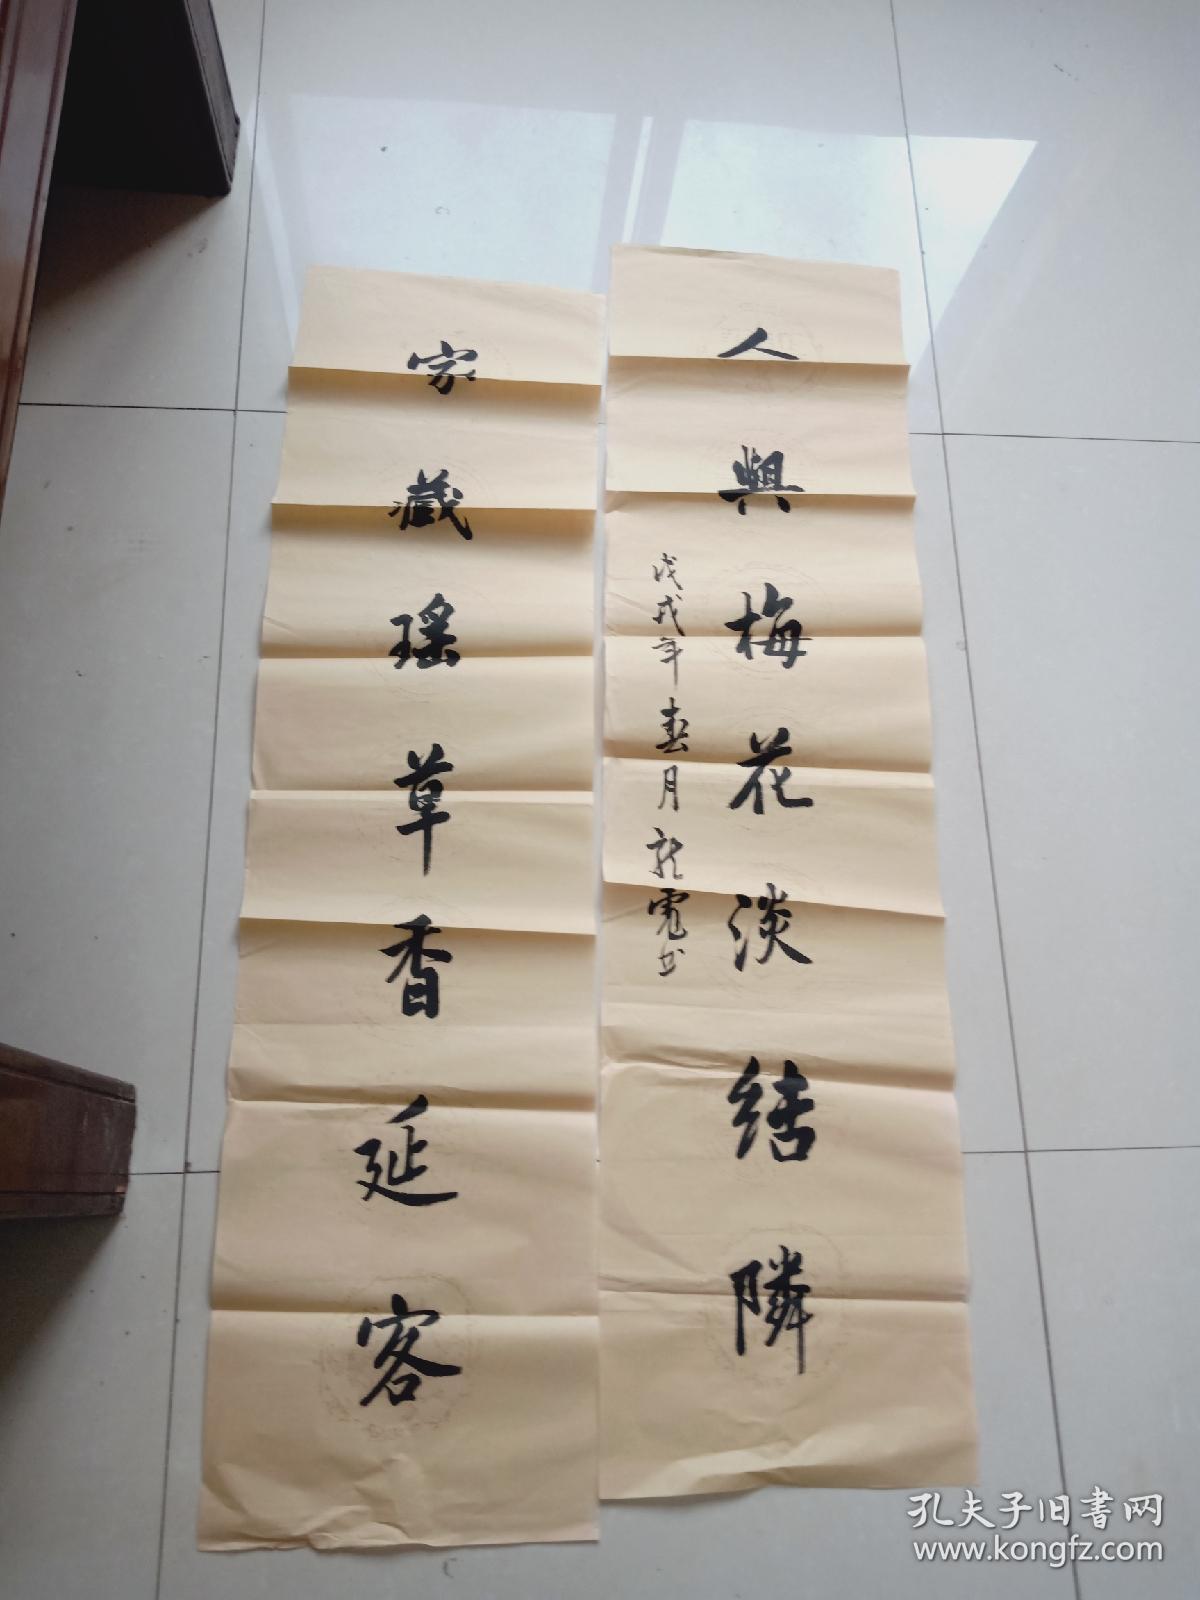 人與梅花淡結隣
戊戌年春月龍電书
家藏瑶草香延客
孔夫子旧书网
www.kongfz.com